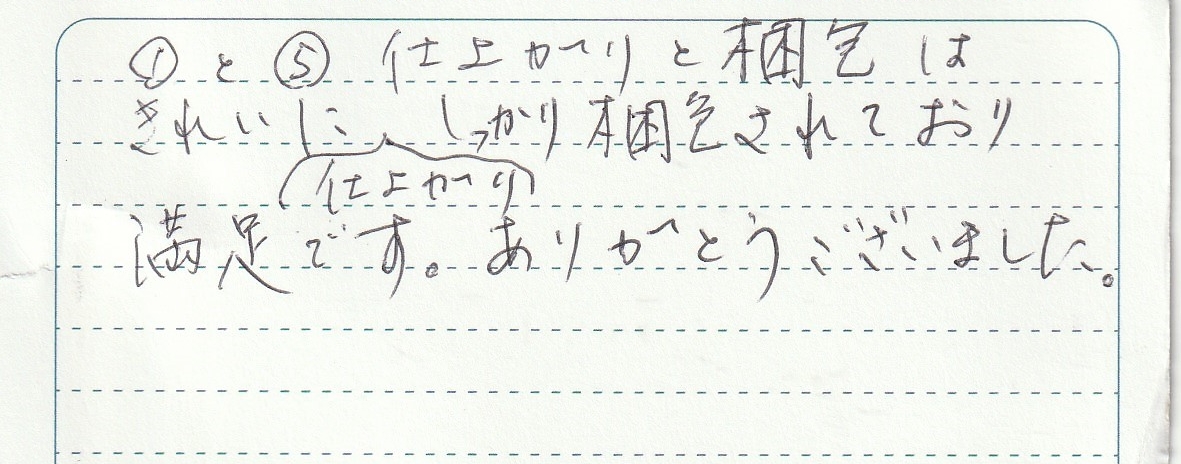 ①と⑤ 仕上がりと梱包は
きれいに、しっかり梱包されており
(仕上がり)
満足です。ありがとうございました。